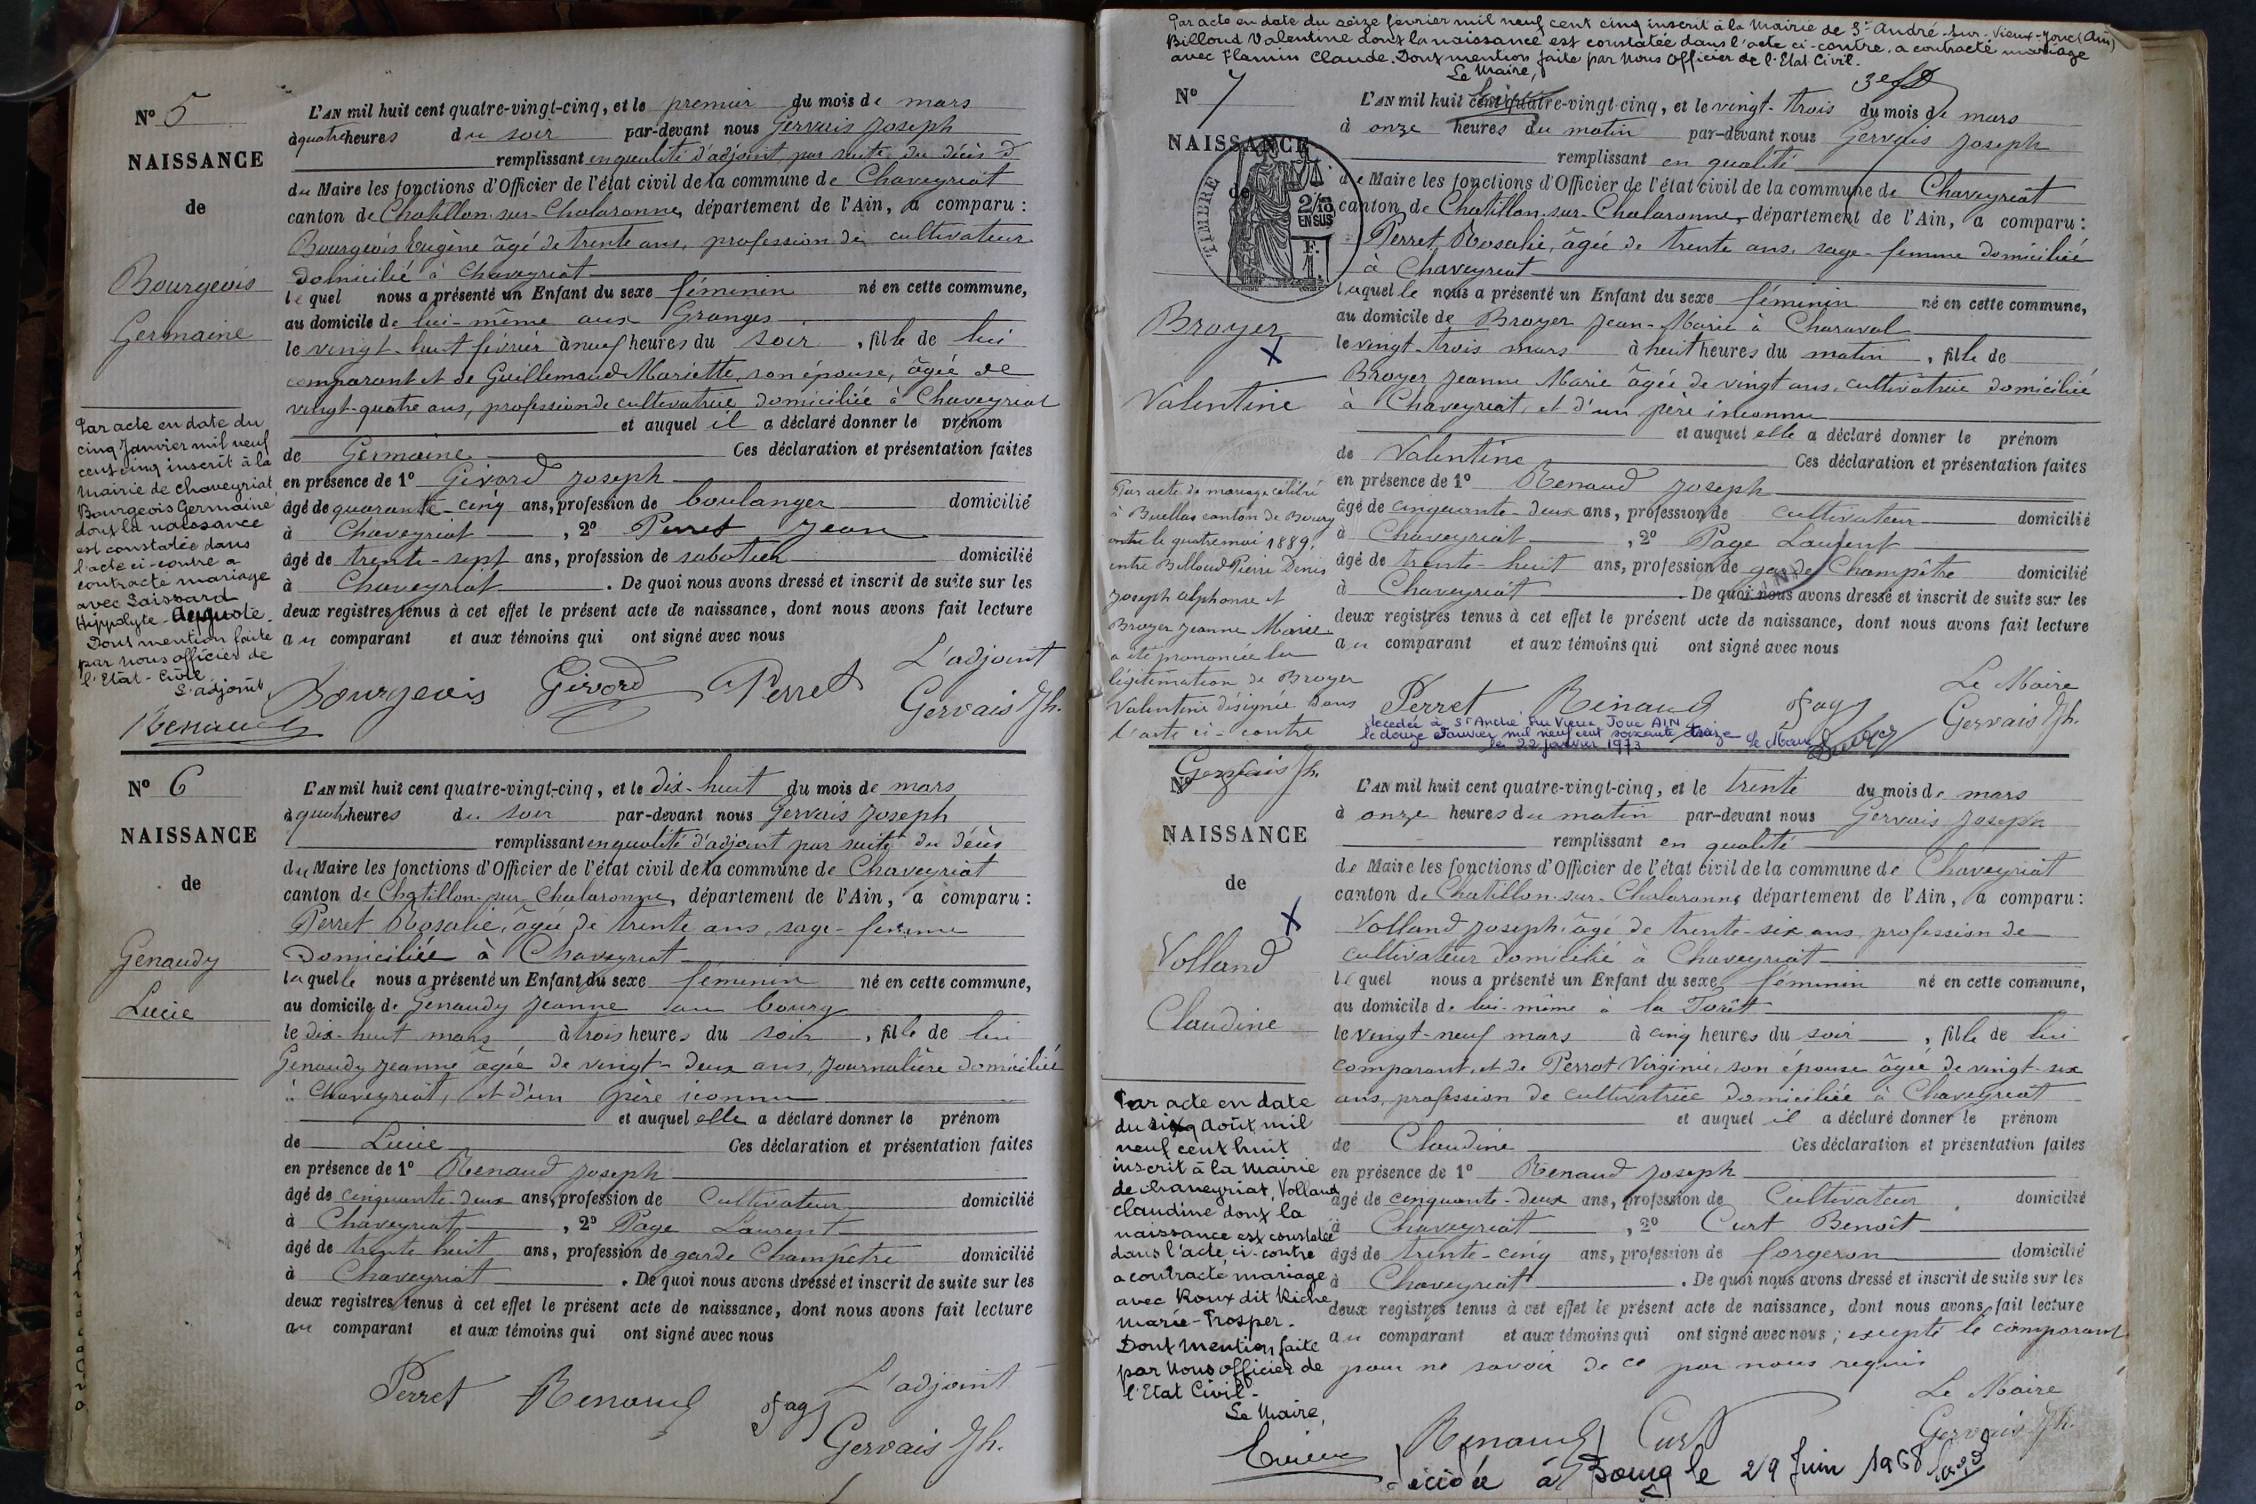 N° 5
NAISSANCE
de
Bourgeois
Germaine
Par acte en date du
cinq Janvier mil neuf
cent cinq inscrit à la
Mairie de Chaveyriat
Bourgeois Germaine
dont la naissance
est constatée dans
l'acte ci-contre a
contracté mariage
avec
Hippolyte -
Dont mention faite
par Nous officier de
l'Etat-Civil
L'adjoint
Renaud
L'AN mil huit cent quatre-vingt-cinq, et le premier du mois de mars
à quatre heures du soir par-devant nous Gervais Joseph
remplissant en qualité d'adjoint, par suite du décès d
du Maire les fonctions d'Officier de l'état civil de la commune de Chaveyriat
canton de Chatillon-sur-Chalaronne, département de l'Ain, a comparu :
Bourgeois Eugène âgé de trente ans, profession de cultivateur
domicilié à Chaveyriat
lequel nous a présenté un Enfant du sexe féminin né en cette commune,
au domicile de lui-même aux Granges
le vingt-huit février à neuf heures du soir, fille de lui
comparant et de Guillemaud Mariette, son épouse, âgée de
vingt-quatre ans, profession de cultivatrice domiciliée à Chaveyriat
et auquel il a déclaré donner le prénom
de Germaine Ces déclaration et présentation faites
en présence de 1° Givord Joseph
âgé de quarante-cinq ans, profession de boulanger domicilié
à Chaveyriat, 2° Perret Jean
âgé de trente-sept ans, profession de sabotier domicilié
à Chaveyriat. De quoi nous avons dressé et inscrit de suite sur les
deux registres tenus à cet effet le présent acte de naissance, dont nous avons fait lecture
au comparant et aux témoins qui ont signé avec nous
L'adjoint
Bourgeois Givord Perret Gervais Jh.
N° 6
NAISSANCE
de
Genaudy
Lucie
L'AN mil huit cent quatre-vingt-cinq, et le dix-huit du mois de mars
à quatre heures du soir par-devant nous Gervais Joseph
remplissant en qualité d'adjoint par suite du décès
du Maire les fonctions d'Officier de l'état civil de la commune de Chaveyriat
canton de Chatillon-sur-Chalaronne, département de l'Ain, a comparu :
Perret Rosalie, âgée de trente ans, sage-femme
Domiciliée à Chaveyriat
laquelle nous a présenté un Enfant du sexe féminin né en cette commune,
au domicile de Genaudy Jeanne au bourg
le dix-huit mars à trois heures du soir, fille de lui
Genaudy Jeanne âgée de vingt-deux ans, journalière domiciliée
à Chaveyriat, et d'un père iconnu
et auquel elle a déclaré donner le prénom
de Lucie Ces déclaration et présentation faites
en présence de 1° Renaud Joseph
âgé de cinquante-deux ans, profession de Cultivateur domicilié
à Chaveyriat, 2° Page Laurent
âgé de trente huit ans, profession de garde Champêtre domicilié
à Chaveyriat. De quoi nous avons dressé et inscrit de suite sur les
deux registres tenus à cet effet le présent acte de naissance, dont nous avons fait lecture
au comparant et aux témoins qui ont signé avec nous
L'adjoint
Perret Renaud Page Gervais Jh.
Par acte en date du seize février mil neuf cent cinq inscrit à la Mairie de St André-sur-Vieux-Jonc (Ain)
Billoud Valentine dont la naissance est constatée dans l'acte ci-contre, a contracté mariage
avec Flamin Claude. Dont mention faite par Nous Officier de l'Etat Civil.
Le Maire,
N° 7
NAISSANCE
de
TIMBRE
2/10
EN SUS
F.
1.
Broyer
X
Valentine
Par acte de mariage célébré
à Buellas canton de Bourg
le quatre mai 1889,
entre Billoud Pierre Denis
Joseph alphonse et
Broyer Jeanne Marie
a été prononcée la
légitimation de Broyer
Valentine désignée dans
l'acte ci-contre
Gervais Jh.
L'AN mil huit cent quatre-vingt-cinq, et le vingt-trois du mois de mars
à onze heures du matin par-devant nous Gervais Joseph
remplissant en qualité
de Maire les fonctions d'Officier de l'état civil de la commune de Chaveyriat
canton de Chatillon-sur-Chalaronne, département de l'Ain, a comparu :
Perret Rosalie, âgée de trente ans, sage-femme domiciliée
à Chaveyriat
laquelle nous a présenté un Enfant du sexe féminin né en cette commune,
au domicile de Broyer Jean-Marie à Charaval
le vingt-trois mars à huit heures du matin, fille de
Broyer Jeanne Marie âgée de vingt ans, cultivatrice domiciliée
à Chaveyriat, et d'un père inconnu
et auquel elle a déclaré donner le prénom
de Valentine Ces déclaration et présentation faites
en présence de 1° Renaud Joseph
âgé de cinquante-deux ans, profession de cultivateur domicilié
à Chaveyriat, 2° Page Laurent
âgé de trente-huit ans, profession de garde Champêtre domicilié
à Chaveyriat. De quoi nous avons dressé et inscrit de suite sur les
deux registres tenus à cet effet le présent acte de naissance, dont nous avons fait lecture
au comparant et aux témoins qui ont signé avec nous
Le Maire
Perret Renaud Page Gervais Jh.
decedée à St André sur Vieux Jonc AIN
le douze Janvier mil neuf cent soixante treize
le 22 janvier 1973 Le Maire
N°
NAISSANCE
de
X
Volland
Claudine
Par acte en date
du six août mil
neuf cent huit
inscrit à la Mairie
de Chaveyriat, Volland
Claudine dont la
naissance est constatée
dans l'acte ci-contre
a contracté mariage
avec Roux dit Riche
Marie-Prosper.
Dont mention faite
par Nous officier de
l'Etat Civil-
Le Maire,
L'AN mil huit cent quatre-vingt-cinq, et le trente du mois de mars
à onze heures du matin par-devant nous Gervais Joseph
remplissant en qualité
de Maire les fonctions d'Officier de l'état civil de la commune de Chaveyriat
canton de Chatillon-sur-Chalaronne département de l'Ain, a comparu :
Volland Joseph, âgé de trente-six ans, profession de
cultivateur domicilié à Chaveyriat
lequel nous a présenté un Enfant du sexe féminin né en cette commune,
au domicile de lui-même à la Forêt
le vingt-neuf mars à cinq heures du soir, fille de lui
comparant, et de Perrot Virginie, son épouse âgée de vingt-six
ans, profession de cultivatrice domiciliée à Chaveyriat
et auquel il a déclaré donner le prénom
de Claudine Ces déclaration et présentation faites
en présence de 1° Renaud Joseph
âgé de cinquante-deux ans, profession de Cultivateur domicilié
à Chaveyriat, 2° Curt Benoît
âgé de trente-cinq ans, profession de forgeron domicilié
à Chaveyriat. De quoi nous avons dressé et inscrit de suite sur les
deux registres tenus à cet effet le présent acte de naissance, dont nous avons fait lecture
au comparant et aux témoins qui ont signé avec nous ; excepté le comparant
pour ne savoir de ce par nous requis
Le Maire
Renaud Curt Gervais Jh.
décédée à Bourg le 29 Juin 1968